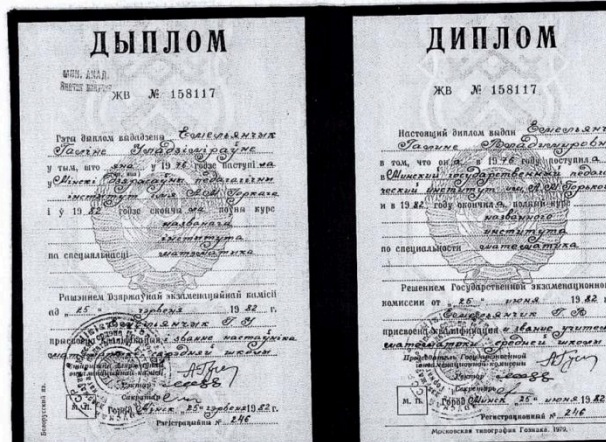 ДЫПЛОМ
ЖВ № 158117
Гэты дыплом выдадзены Емельянчык
Галіне Уладзіміраўне
у тым, што яна у 1976 годзе паступіла
у Мінскі Дзяржаўны педагагічны
інстытут імя А.М. Горкага
і ў 1982 годзе скончыла поўны курс
названага
інстытута
па спецыяльнасці математика
Рашэннем Дзяржаўнай экзаменацыйнай камісіі
ад "25" червеня 1982 г.
Емельянчык Г. У.
прысвоена кваліфікацыя і званне настаўніка
математикі сярэдняй школы
Старшыня Дзяржаўнай
экзаменацыйнай камісіі
Рэктар
Сакратар
М. П. Горад Мінск "25" червеня 1982 г.
Рэгістрацыйны № 246
Беларускі яз.
ДИПЛОМ
ЖВ № 158117
Настоящий диплом выдан Емельянч
Галине Владимировн
в том, что она в 1976 году поступила
в Минский государственный педаго
гический институт им. А.М. Горького
и в 1982 году окончила полный курс
названного
института
по специальности математика
Решением Государственной экзаменационно
комиссии от "25" июня 1982
Емельянчик Г. В.
присвоена квалификация и звание учител
математики средней школы
Председатель Государственной
экзаменационной комиссии
Ректор
Секретарь
М. П. Город Минск "25" июня 1982
Регистрационный № 246
Московская типография Гознака. 1979.